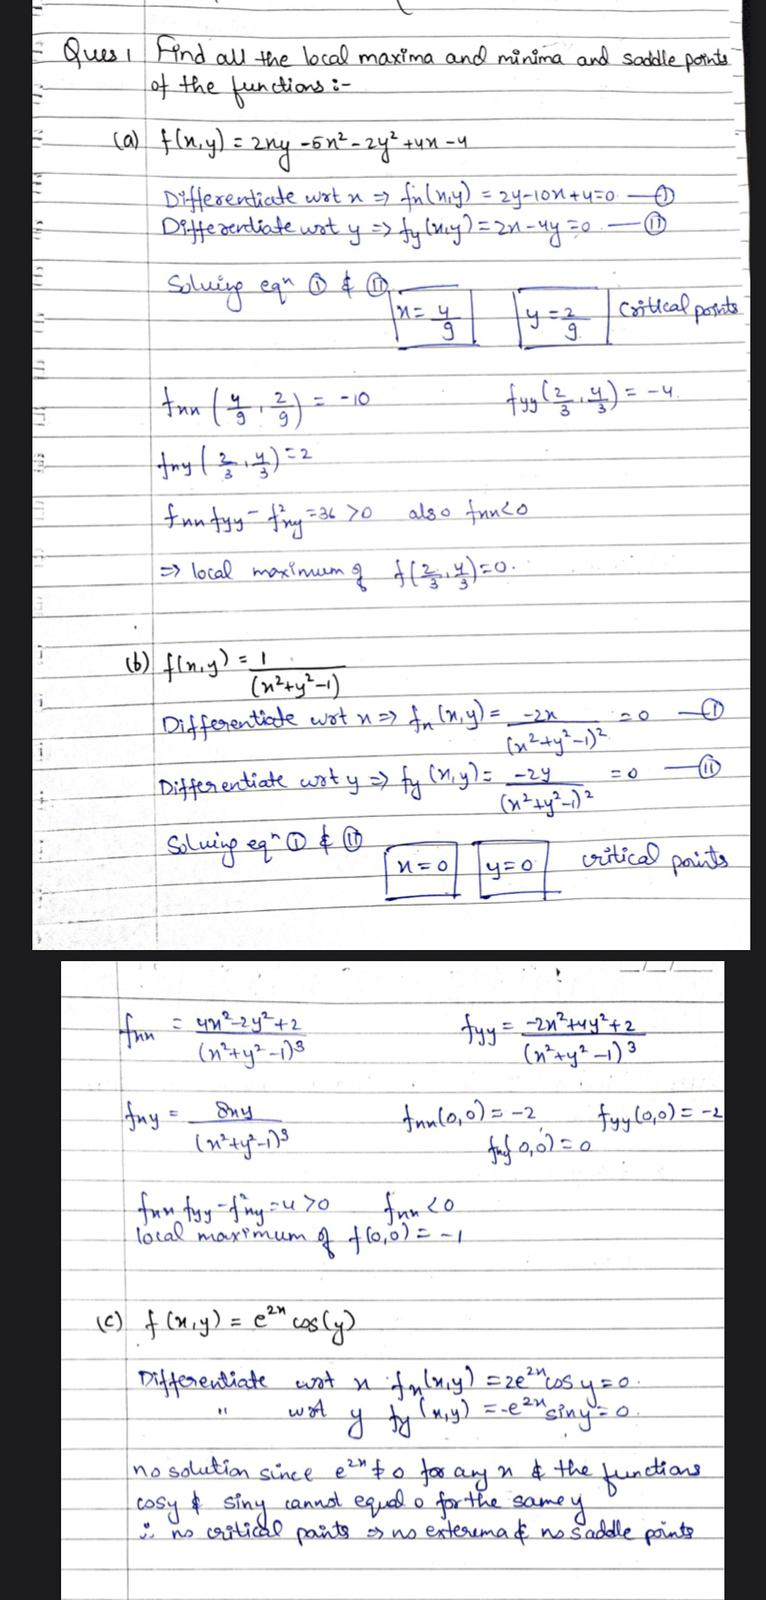 Ques 1 Find all the local maxima and minima and saddle points
of the functions :-
(a) f(x,y) = 2xy - 5x² - 2y² + 4x - 4
Differentiate wrt x ⇒ fx(x,y) = 2y - 10x + 4 = 0 — (I)
Differentiate wrt y ⇒ fy(x,y) = 2x - 4y = 0 — (II)
Solving eqⁿ (I) & (II)
x = 4/9 y = 2/9 critical points
fxx (4/9, 2/9) = -10 fyy (2/3, 4/3) = -4
fxy (2/3, 4/3) = 2
fxx fyy - f²xy = 36 > 0 also fxx < 0
⇒ local maximum of f(2/3, 4/3) = 0.
(b) f(x,y) = 1/(x²+y²-1)
Differentiate wrt x ⇒ fx (x,y) = -2x/(x²+y²-1)² = 0 — (I)
Differentiate wrt y ⇒ fy (x,y) = -2y/(x²+y²-1)² = 0 — (II)
Solving eqⁿ (I) & (II)
x = 0 y = 0 critical points
fxx = 4x²-2y²+2/(x²+y²-1)³ fyy = -2x²+4y²+2/(x²+y²-1)³
fxy = 8xy/(x²+y²-1)³ fxx(0,0) = -2 fyy(0,0) = -2
fxy(0,0) = 0
fxx fyy - f²xy = 4 > 0 fxx < 0
local maximum of f(0,0) = -1
(c) f(x,y) = e²ˣ cos(y)
Differentiate wrt x fx(x,y) = 2e²ˣ cos y = 0.
" wrt y fy(x,y) = -e²ˣ sin y = 0.
no solution since e²ˣ ≠ 0 for any x & the functions
cosy & siny cannot equal 0 for the same y
∴ no critical points ⇒ no exterema & no saddle points